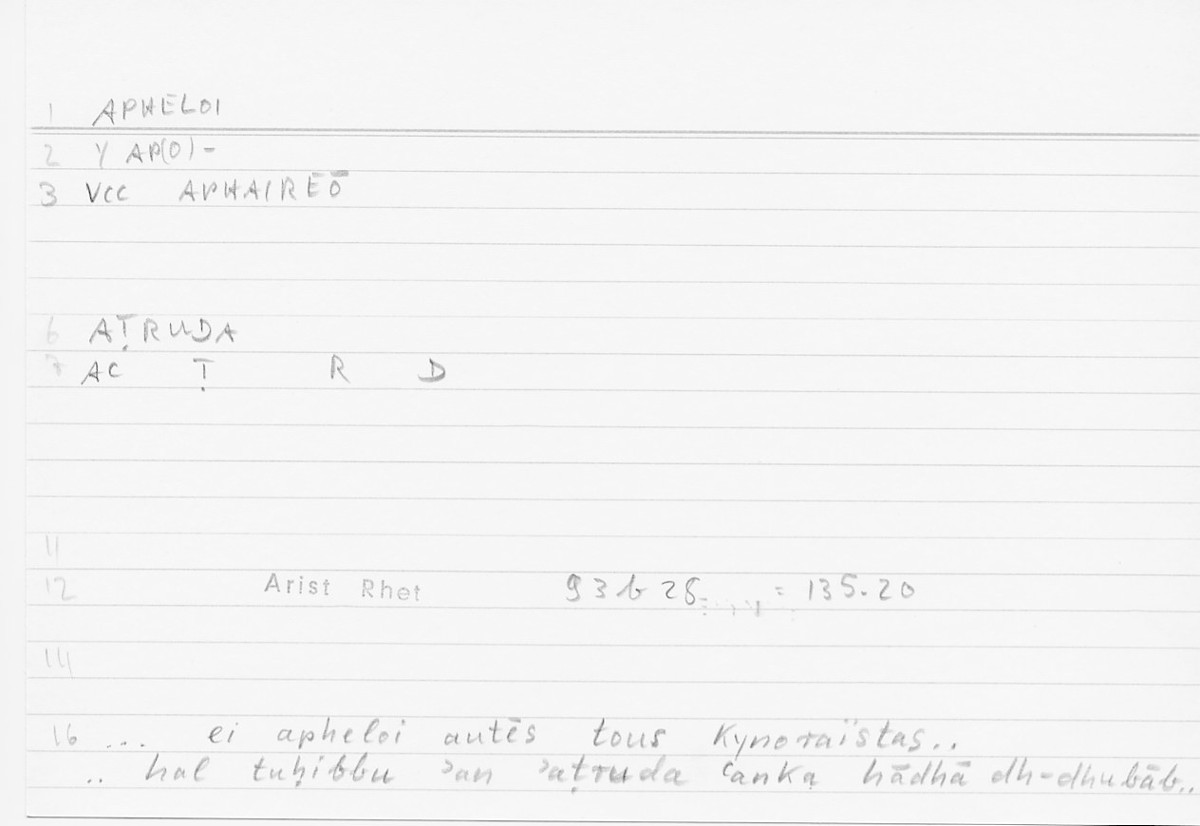 1 APHELOI
2 Y AP(O)-
3 VCC APHAIREŌ
6 AṬRUDA
7 AC Ṭ R D
11
12 Arist Rhet 93b 28 = 135.20
14
16 ... ei apheloi autēs tous Kynoraïstas..
.. hal tuḥibbu ʾan ʾaṭruda ʿanka hādhā dh-dhubāb..